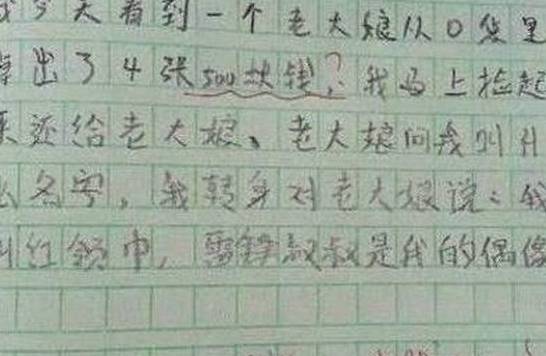 今天看到一个老大娘从口袋里
掉出了4张500块钱,?我马上捡起
来还给老大娘、老大娘问我叫什
么名字,我转身对老大娘说:我
叫红领巾,雷锋叔叔是我的偶像